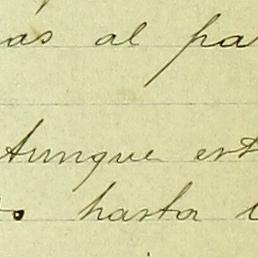 as al pa
Aunque est
hasta